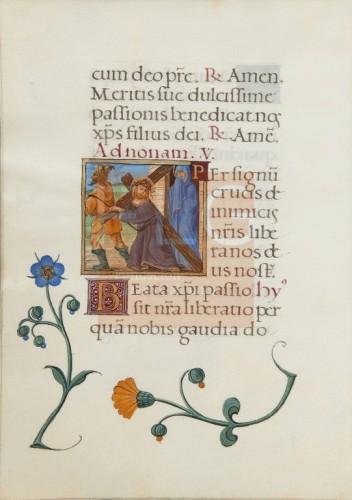 cum deo pr̄e. ℞ Amen.
Meritis sue dulcissime
passionis benedicat nos
xp̄s filius dei. ℞ Amē.
Ad nonam. v.
PEr signū
crucis de
inimicis
nr̄is libe
ra nos de
us nos̄t.
BEata xp̄i passio hy⁹
sit nr̄a liberatio per
quā nobis gaudia do